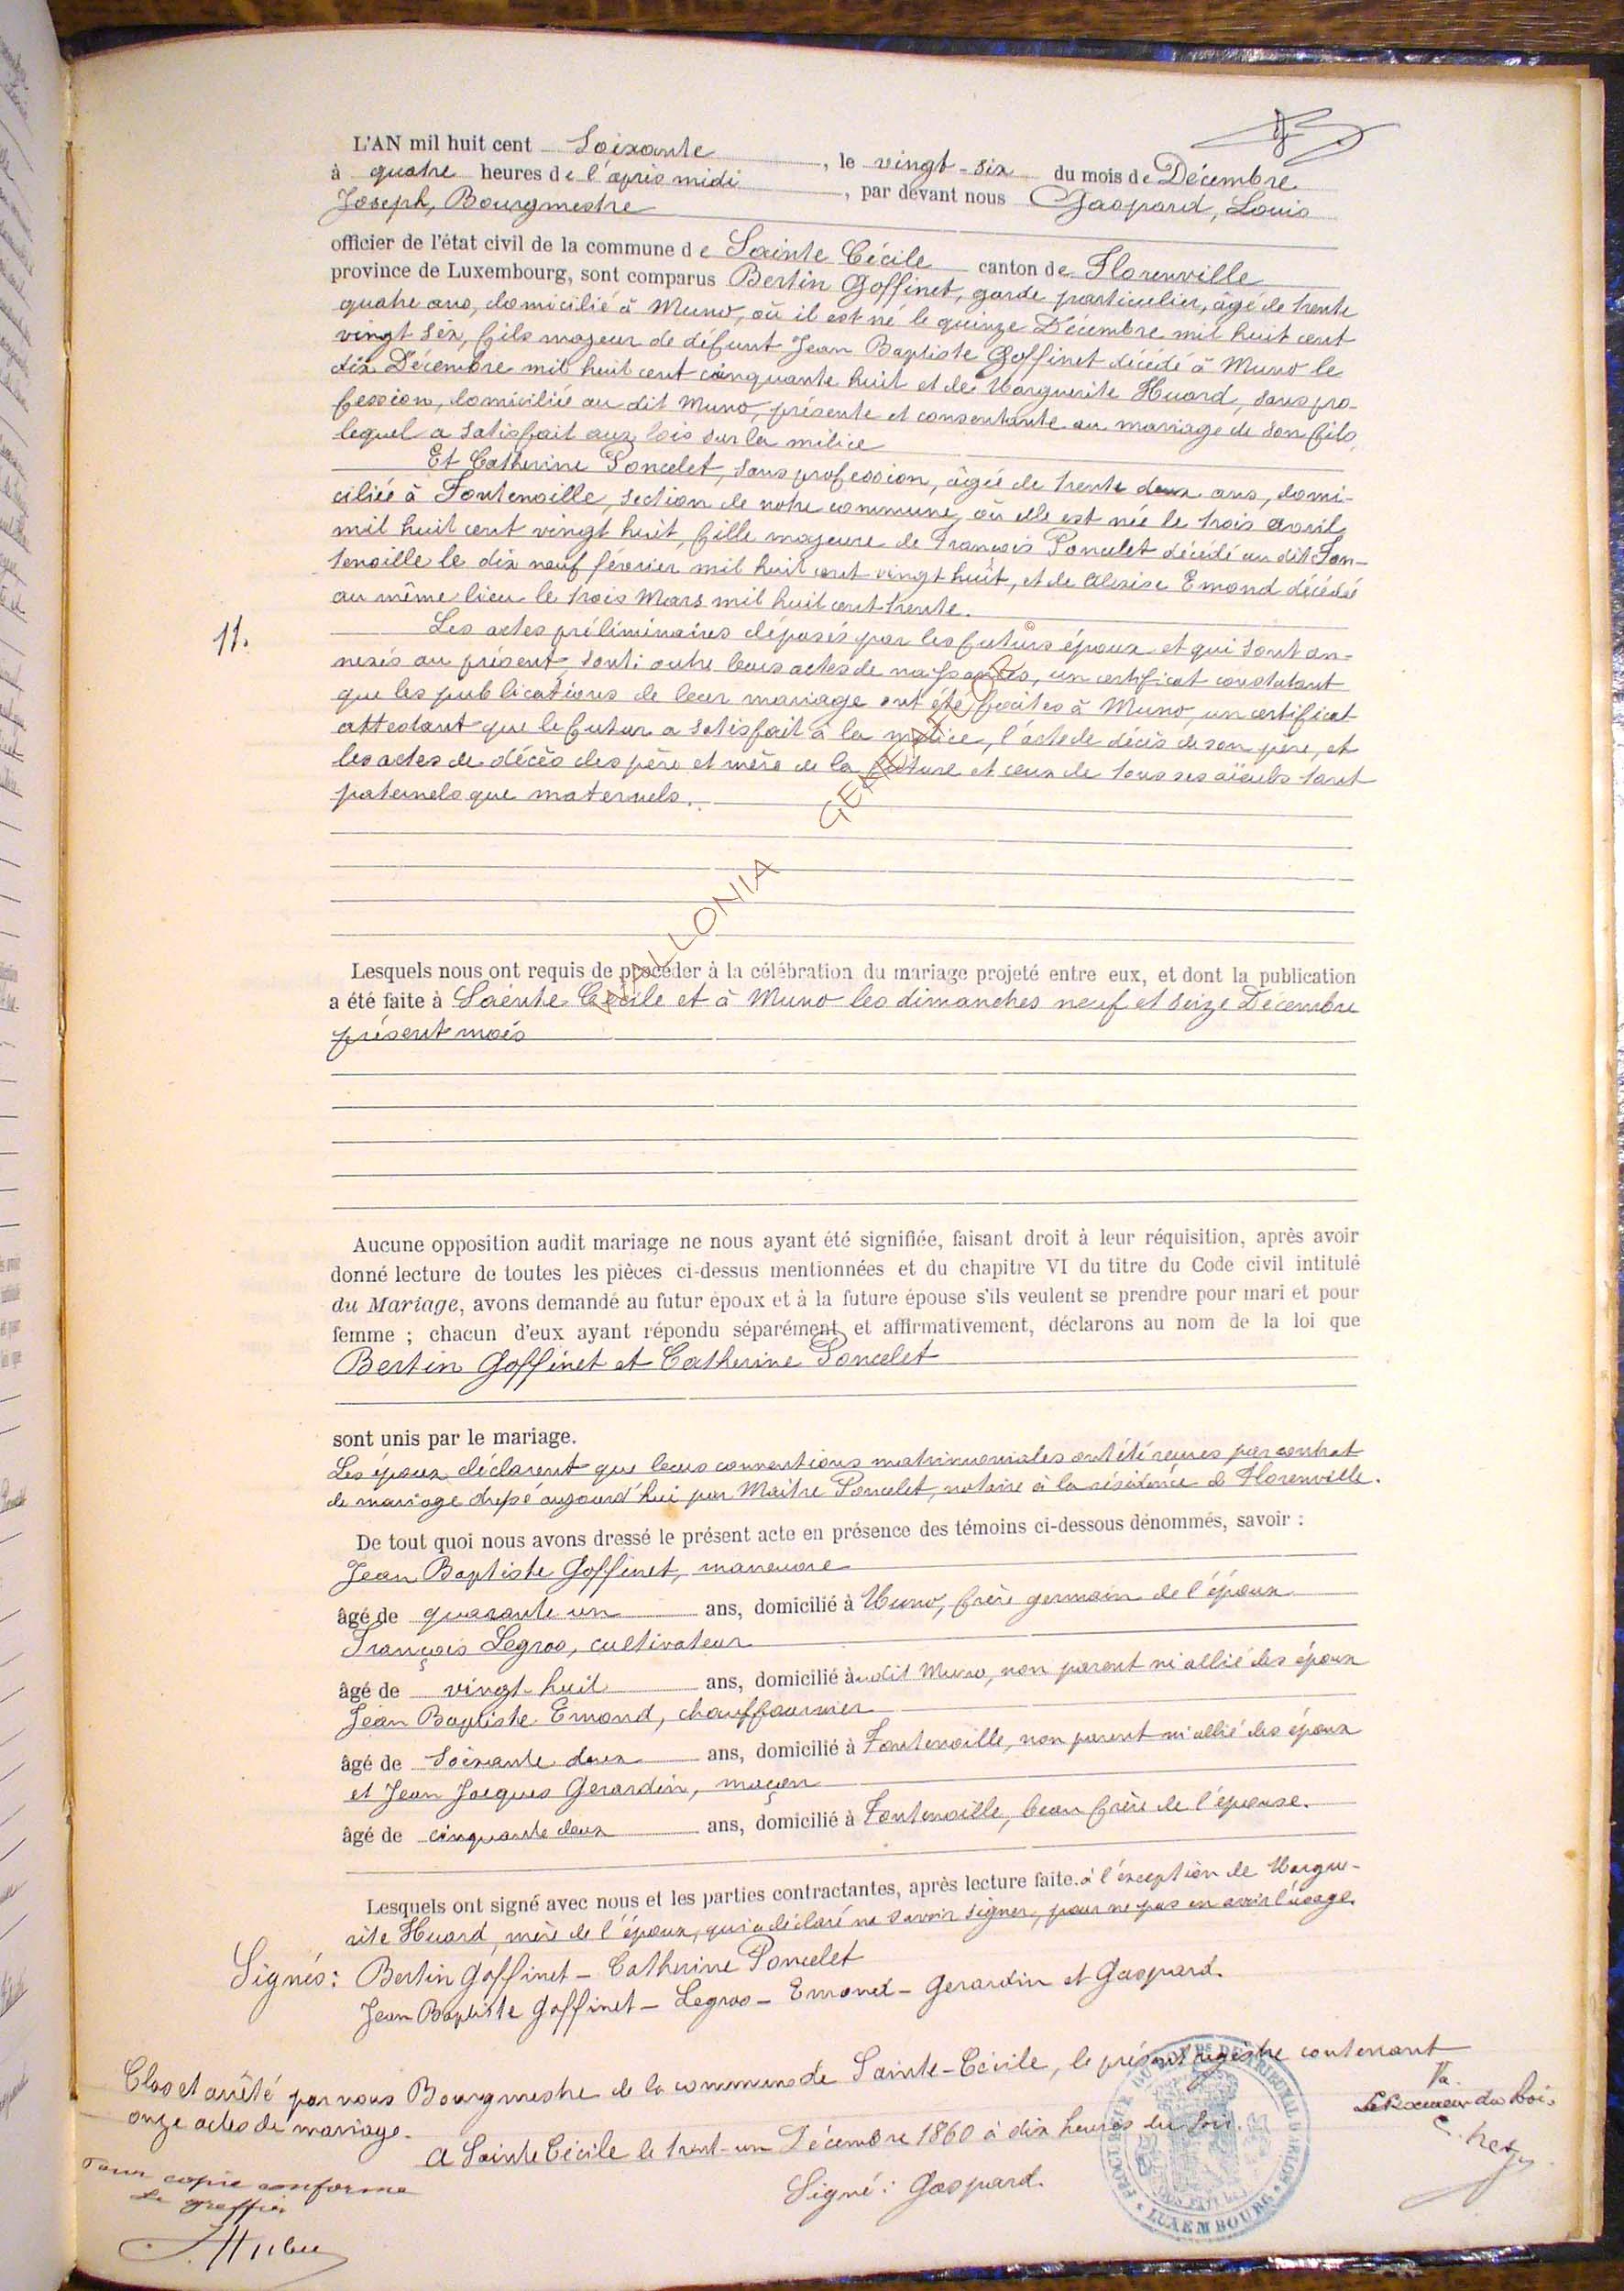 L'AN mil huit cent Soixante, le vingt-six du mois de Décembre
à quatre heures de l'après midi, par devant nous Gaspard, Louis
Joseph, Bourgmestre
officier de l'état civil de la commune de Sainte Cécile canton de Florenville
province de Luxembourg, sont comparus Bertin Goffinet, garde particulier, âgé de trente
quatre ans, domicilié à Muno, où il est né le quinze Décembre mil huit cent
vingt six, fils majeur de défunt Jean Baptiste Goffinet décédé à Muno le
dix Décembre mil huit cent cinquante huit et de Marguerite Huard, sans pro-
fession, domiciliée au dit Muno, présente et consentante au mariage de son fils,
lequel a satisfait aux lois sur la milice
Et Catherine Poncelet, sans profession, âgée de trente deux ans, domi-
ciliée à Fontenoille, section de notre commune, où elle est née le trois avril
mil huit cent vingt huit, fille majeure de François Poncelet décédé au dit Fon-
tenoille le dix neuf février mil huit cent vingt huit, et de Alexise Emond décédée
au même lieu le trois Mars mil huit cent trente.
11.
Les actes préliminaires déposés par les futurs époux et qui sont an-
nexés au présent, sont: outre leurs actes de naissances, un certificat constatant
que les publications de leur mariage ont été faites à Muno, un certificat
attestant que le futur a satisfait à la milice, l'acte de décès de son père, et
les actes de décès des père et mère de la future et ceux de tous ses aïeuls tant
paternels que maternels.
©
WALLONIA
Lesquels nous ont requis de procéder à la célébration du mariage projeté entre eux, et dont la publication
a été faite à Sainte Cécile et à Muno les dimanches neuf et seize Décembre
présent mois
Aucune opposition audit mariage ne nous ayant été signifiée, faisant droit à leur réquisition, après avoir
donné lecture de toutes les pièces ci-dessus mentionnées et du chapitre VI du titre du Code civil intitulé
du Mariage, avons demandé au futur époux et à la future épouse s'ils veulent se prendre pour mari et pour
femme ; chacun d'eux ayant répondu séparément et affirmativement, déclarons au nom de la loi que
Bertin Goffinet et Catherine Poncelet
sont unis par le mariage.
Les époux déclarent que leurs conventions matrimoniales ont été reçues par contrat
de mariage dressé aujourd'hui par Maitre Poncelet, notaire à la résidence de Florenville.
De tout quoi nous avons dressé le présent acte en présence des témoins ci-dessous dénommés, savoir :
Jean Baptiste Goffinet, manœuvre
âgé de quarante un ans, domicilié à Muno, frère germain de l'époux
François Legros, cultivateur
âgé de vingt-huit ans, domicilié audit Muno, non parent ni allié des époux
Jean Baptiste Emond, chauffournier
âgé de Soixante deux ans, domicilié à Fontenoille, non parent ni allié des époux
et Jean Jacques Gerardin, maçon
âgé de cinquante deux ans, domicilié à Fontenoille, beau frère de l'épouse.
Lesquels ont signé avec nous et les parties contractantes, après lecture faite. à l'exception de Margue-
rite Huard, mère de l'époux, qui a déclaré ne savoir signer, pour ne pas en avoir l'usage.
Signés: Bertin Goffinet - Catherine Poncelet
Jean Baptiste Goffinet - Legros - Emond - Gerardin et Gaspard.
Clos et arrêté par nous Bourgmestre de la commune de Sainte-Cécile, le présent registre contenant
onze actes de mariage.
A Sainte Cécile le trent-un Décembre 1860 à dix heures du soir.
Signé: Gaspard.
Pour copie conforme
Le greffier
Vu.
Le Procureur du Roi.
LUXEMBOURG